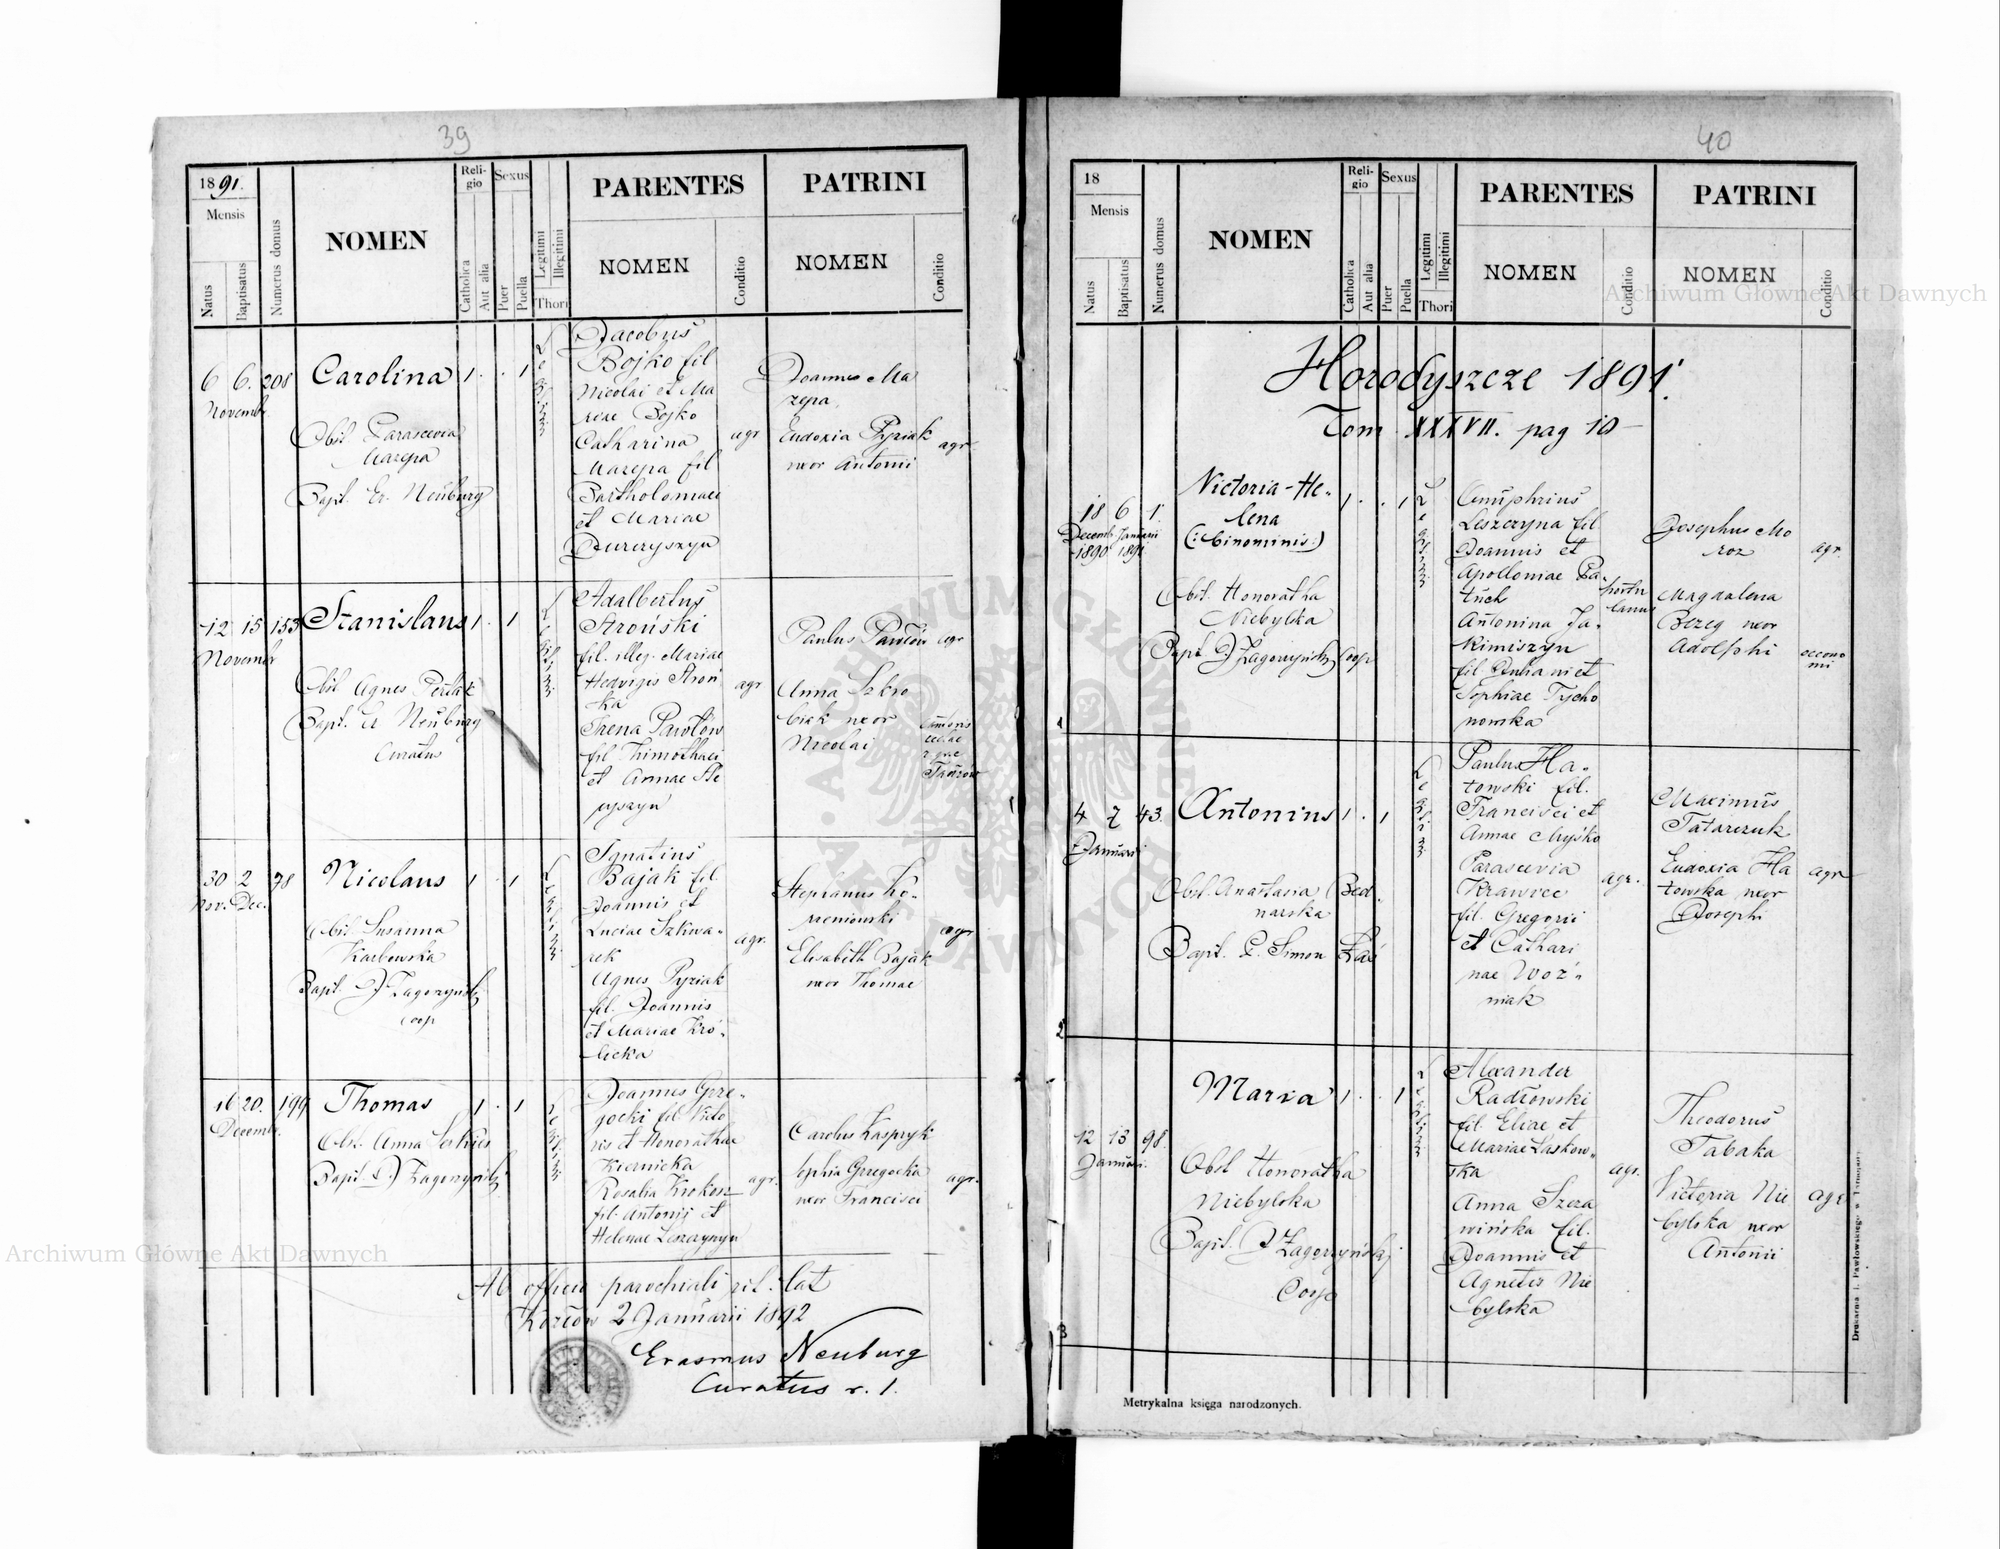 39
1891.
Mensis
Natus
Baptisatus
Numerus domus
NOMEN
Religio
Catholica
Aut alia
Sexus
Puer
Puella
Legitimi
Illegitimi
Thori
PARENTES
NOMEN
Conditio
PATRINI
NOMEN
Conditio
6 6. 208
Novemb.
Carolina 1 . . 1
Obst Parascevia
Mazepa
Bapt. Er. Neuburg
Jacobus
Bojko fil
Nicolai et Ma
riae Bojko
Catharina
Mazepa fil
Bartholomaei
et Mariae
agr
Joannes Ma
zepa
Eudoxia Pyziak
uxor Antonii
agr.
12 15 153
Novembr
Stanislaus 1 . 1
Obst Agnes
Bapt. Er Neuburg
Curatus
Adalbertus
Aroński
fil. illeg. Mariae
Hedvigis Aroń
ska
Irena Pawłów
fil Thimothaei
et Annae
agr
Paulus Pawłów agr
Anna Szkro
uxor
Nicolai
30 2 78
Nov. Dec.
Nicolaus 1 . 1
Obst. Susanna
Karbowska
Bapt. J Zagorzyński
coop
Ignatius
Bajak fil
Joannis et
Luciae
Agnes Pyziak
fil. Joannis
et Mariae Kró-
licka
agr.
Stephanus
Elisabeth Bajak
uxor Thomae
agr
16 20. 199
Decemb.
Thomas 1 . 1
Obst. Anna
Bapt. J Zagorzyński
Joannes Grze-
gocki fil
et Honorathae
Kiernicka
Rosalia Krokosz
fil. Antonii et
Helenae Leszczyszyn
agr.
Carolus Kaspryk
Sophia Grzegocka
uxor Francisci
agr.
Ab officio parochiali rit. lat
Kozłów 2 Januarii 1892
Erasmus Neuburg
Curatus r. l.
40
18
Mensis
Natus
Baptisatus
Numerus domus
NOMEN
Religio
Catholica
Aut alia
Sexus
Puer
Puella
Legitimi
Illegitimi
Thori
PARENTES
NOMEN
Conditio
PATRINI
NOMEN
Conditio
Horodyszcze 1891.
Tom XXXVII. pag 10
18 6 1.
Decemb Januarii
1890 1891
Victoria-He-
lena
(: binominis :)
1 . . 1
Obst. Honoratha
Niebylska
Bapt. J Zagorzyński Coop
Onuphrius
Leszczyna fil
Joannis et
Apolloniae Pa-
tuch
Antonina Ja-
kimiszyn
fil Juliani et
Sophiae Tycho
nowska
Josephus Mo
roz
agr.
Magdalena
Bezeg uxor
Adolphi
oecono
mi
1
4 7 43.
Januarii
Antonius 1 . 1
Obst. Anastasia Bed-
narska
Bapt. P. Simon
Paulus Ha-
towski fil.
Francisci et
Annae Myśko
Parascevia
Krawiec
fil. Gregorii
et Cathari
nae Woź-
niak
agr.
Maximus
Tatarczuk
Eudoxia Ha
towska uxor
Josephi
agr
2
12 13 98.
Januarii.
Maria 1 . . 1
Obst Honoratha
Niebylska
Bapt. J Zagorzyński
Coop
Alexander
Radłowski
fil Eliae et
Mariae Laskow-
ska
Anna Szcza
wińska fil.
Joannis et
Agnetis Nie
bylska
agr.
Theodorus
Tabaka
Victoria Nie
bylska uxor
Antonii
agr
3
Metrykalna księga narodzonych.
Drukarnia i. Pawłowskiego w Tarnopolu
Archiwum Główne Akt Dawnych
Archiwum Główne Akt Dawnych
ARCHIWUM GŁÓWNE AKT DAWNYCH